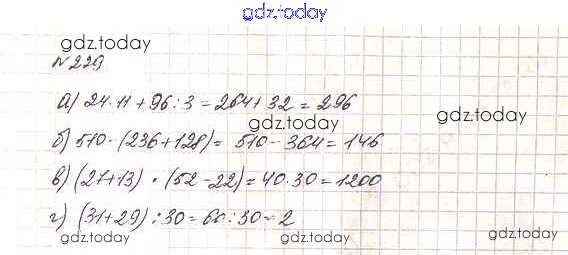 gdz.today
gdz.today
№229
а) 24·11+96:3=264+32=296
gdz.today
gdz.today
б) 510-(236+128)= 510-364=146
в) (27+13)·(52-22)=40·30=1200
г) (31+29):30=60:30=2
gdz.today
gdz.today
gdz.today